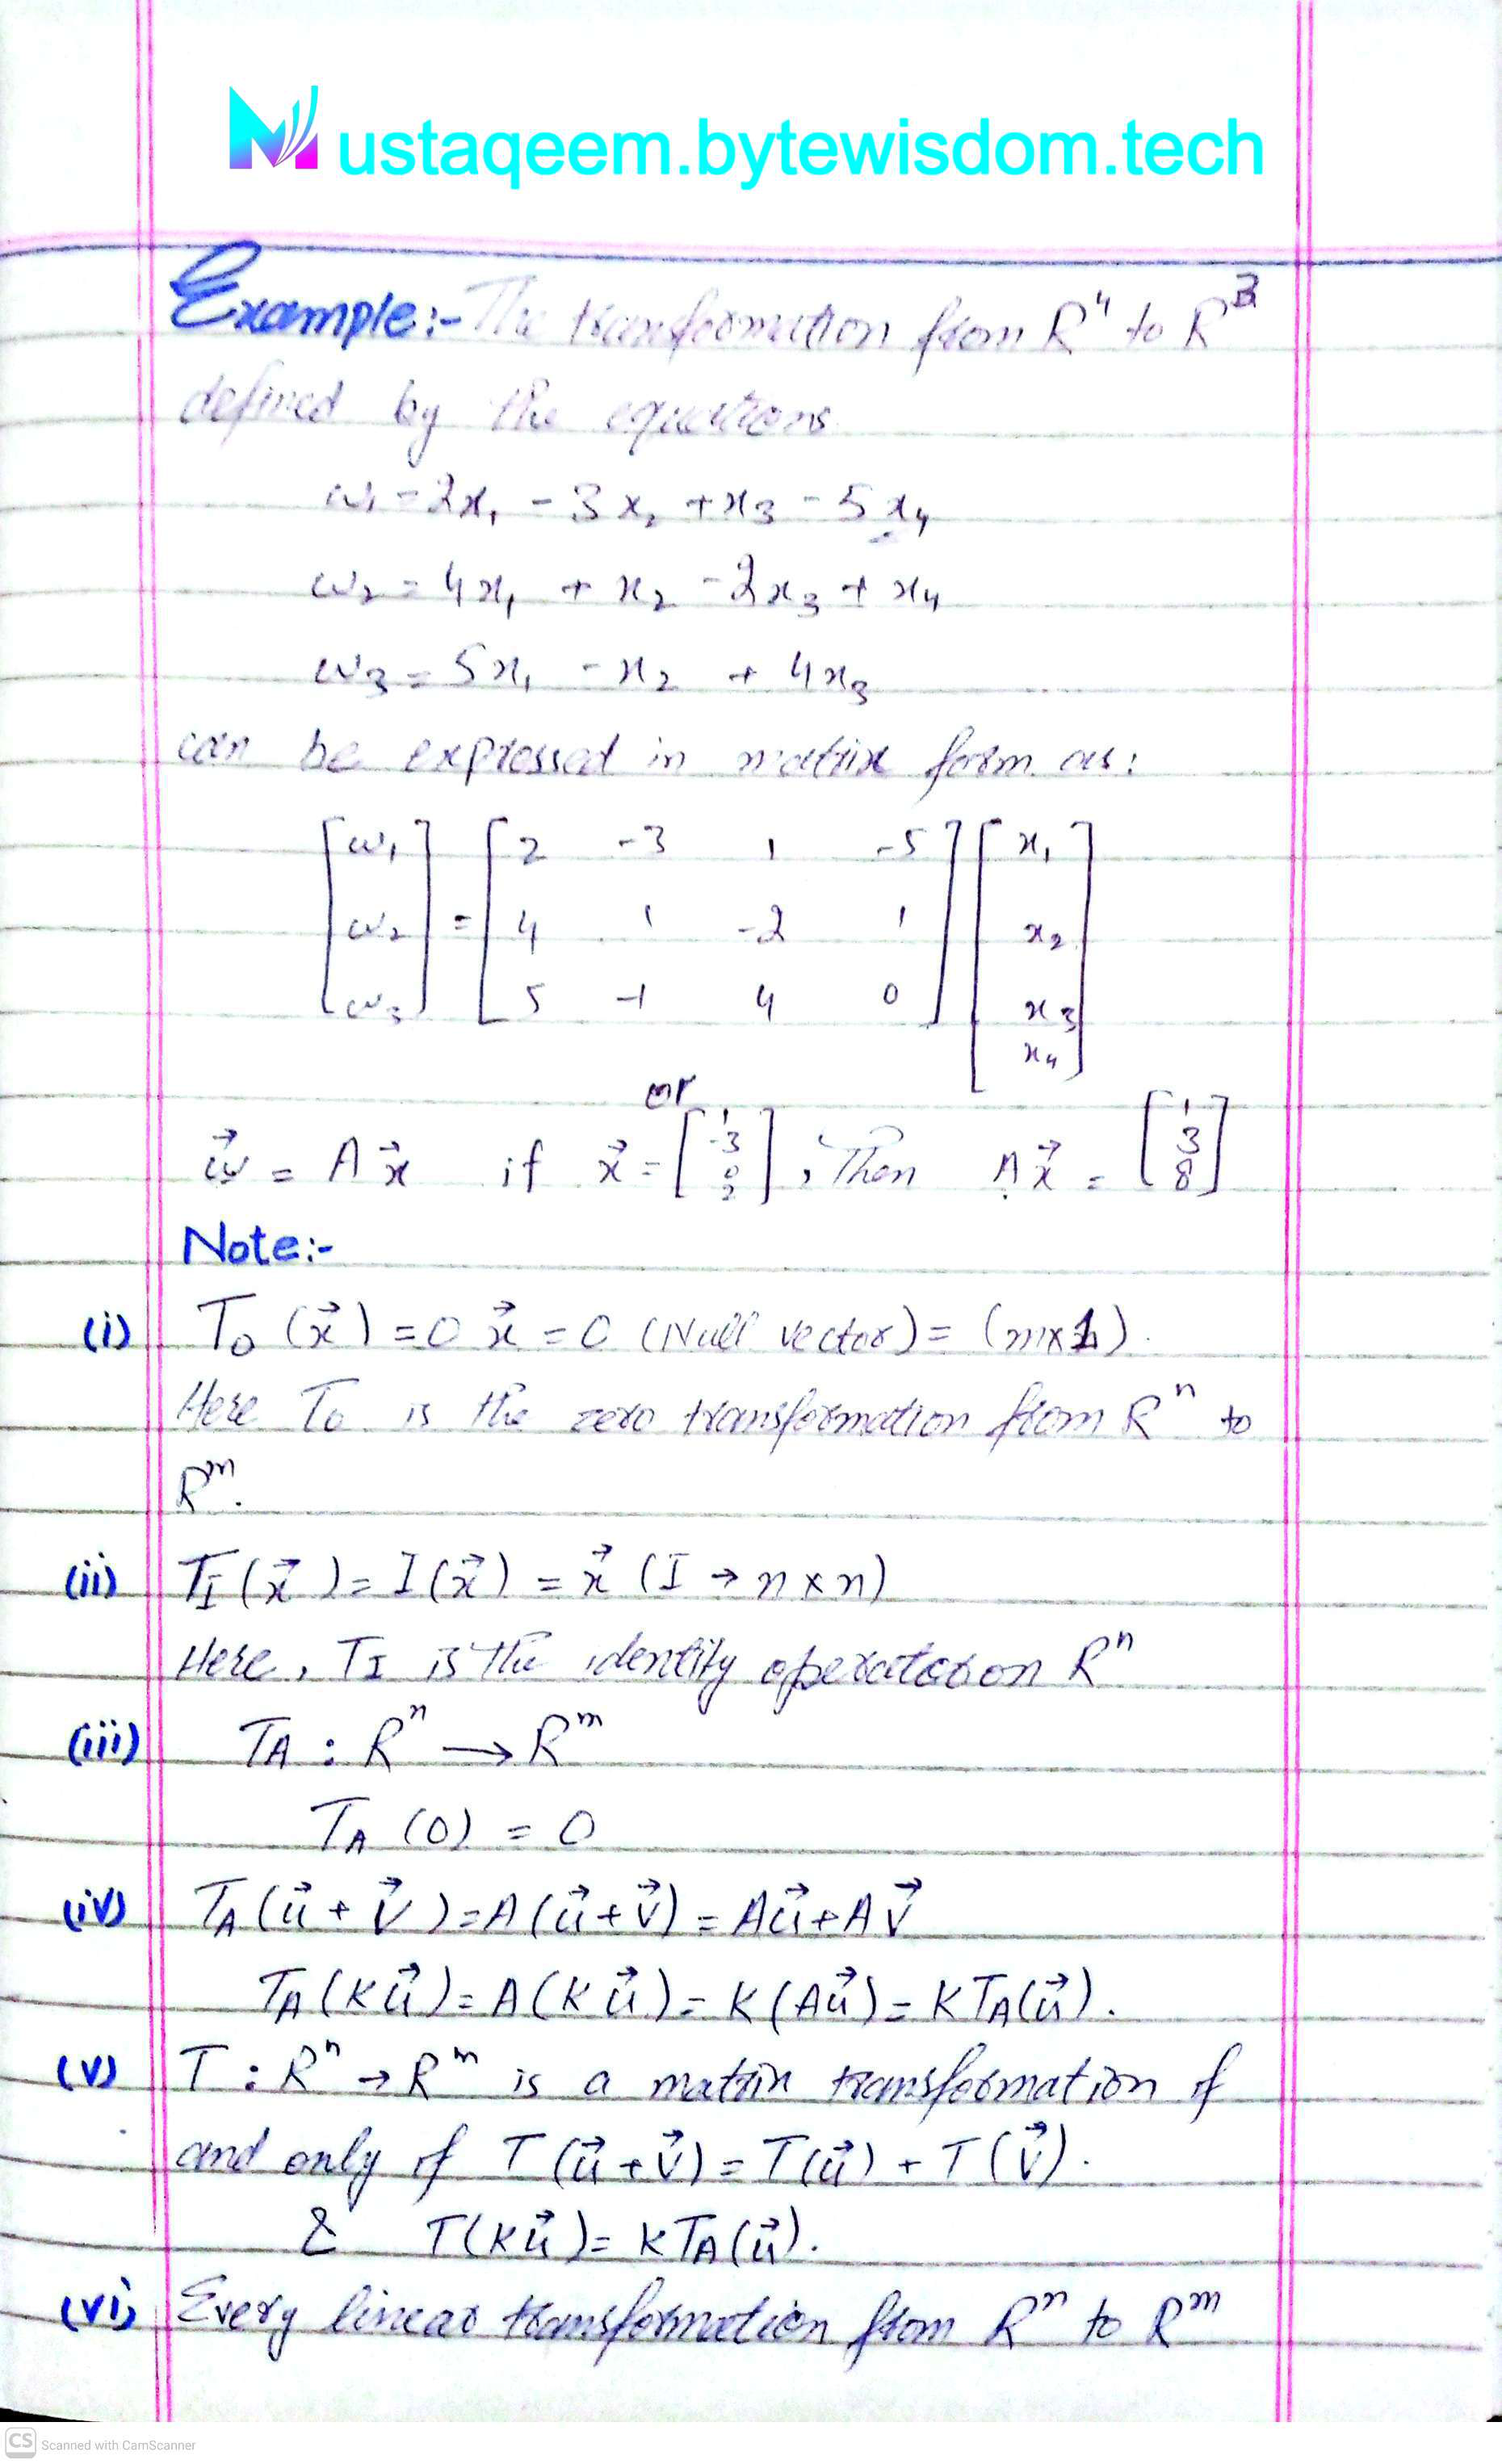 Mustaqeem.bytewisdom.tech
Example:- The transformation from R⁴ to R³
defined by the equations
w₁ = 2x₁ - 3x₂ + x₃ - 5x₄
w₂ = 4x₁ + x₂ - 2x₃ + x₄
w₃ = 5x₁ - x₂ + 4x₃
can be expressed in matrix form as:
[w₁] = [2 -3 1 -5] [x₁]
[w₂] [4 1 -2 1] [x₂]
[w₃] [5 -1 4 0] [x₃]
[x₄]
or
w⃗ = Ax⃗ if x⃗ = [1 -3 0 2], Then Ax⃗ = [1 3 8]
Note:-
(i) T₀(x⃗) = 0x⃗ = 0 (Null vector) = (m×1).
Here T₀ is the zero transformation from Rⁿ to
Rᵐ.
(ii) T_I(x⃗) = I(x⃗) = x⃗ (I → n×n)
Here, T_I is the identity operatoron Rⁿ
(iii) T_A : Rⁿ → Rᵐ
T_A (0) = 0
(iv) T_A(u⃗ + v⃗) = A(u⃗ + v⃗) = Au⃗ + Av⃗
T_A(Ku⃗) = A(Ku⃗) = K(Au⃗) = KT_A(u⃗).
(v) T : Rⁿ → Rᵐ is a matrix transformation if
and only if T(u⃗ + v⃗) = T(u⃗) + T(v⃗).
& T(Ku⃗) = KT_A(u⃗).
(vi) Every linear transformation from Rⁿ to Rᵐ
CS Scanned with CamScanner